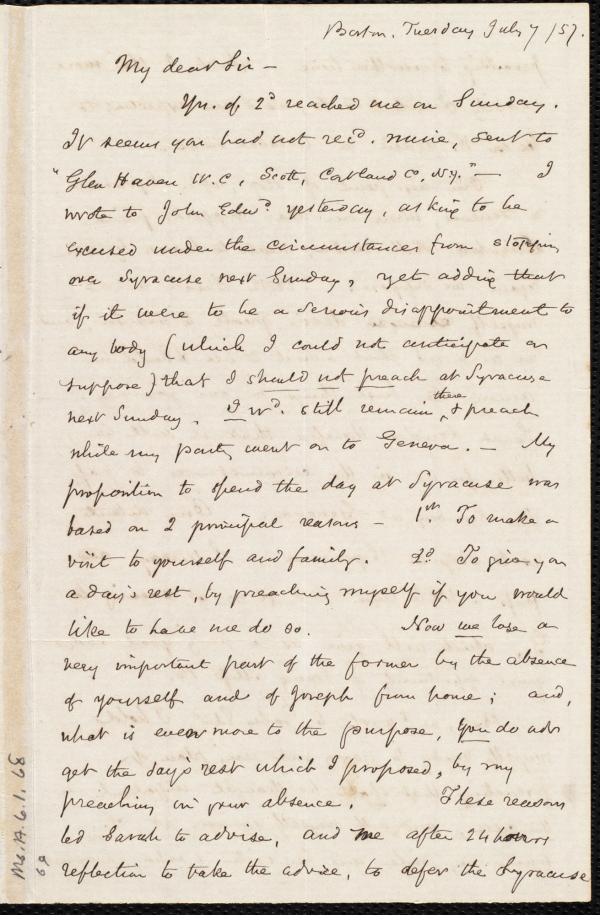 Boston. Tuesday July 7 /57.
My dear Sir –
Yrs. of 2d reached me on Sunday.
It seems you had not recd. mine, sent to
"Glen Haven W. C., Scott, Cortland Co, N.Y." – I
wrote to John Edwd. yesterday, asking to be
excused under the circumstances from stopping
over Syracuse next Sunday, yet adding that
if it were to be a serious disappointment to
any body (which I could not anticipate or
suppose) that I should not preach at Syracuse
next Sunday, I wd. still remain there & preach
while my party went on to Geneva. – My
proposition to spend the day at Syracuse was
based on 2 principal reasons – 1st. To make a
visit to yourself and family. 2d To give you
a day's rest, by preaching myself if you would
like to have me do so. Now we lose a
very important part of the former by the absence
of yourself and of Joseph from home; and,
what is even more to the purpose, you do not
get the day's rest which I proposed, by my
preaching in your absence. These reasons
led Sarah to advise, and me after 24 hours
reflection to take the advice, to defer the Syracuse
Ms. A. 6.1. 68